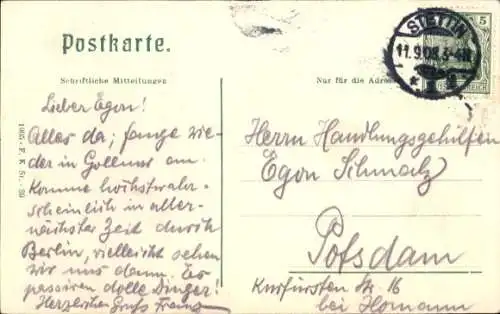 Postkarte.
STETTIN
11.9.08.3-4N
5
Schriftliche Mitteilungen
Nur für die Adresse
1905 - F. K. St. - 39
Lieber Egon!
Alles da; fange wie-
der in Gollnow an.
Komme höchstwahr-
scheinlich in aller-
nächster Zeit durch
Berlin, vielleicht sehen
wir uns dann. Es
passiren dolle Dinger!
Herzlichen Gruß Franz
Herrn Handlungsgehilfen
Egon Schmalz
Potsdam
Kurfürsten Str. 16
bei Homann